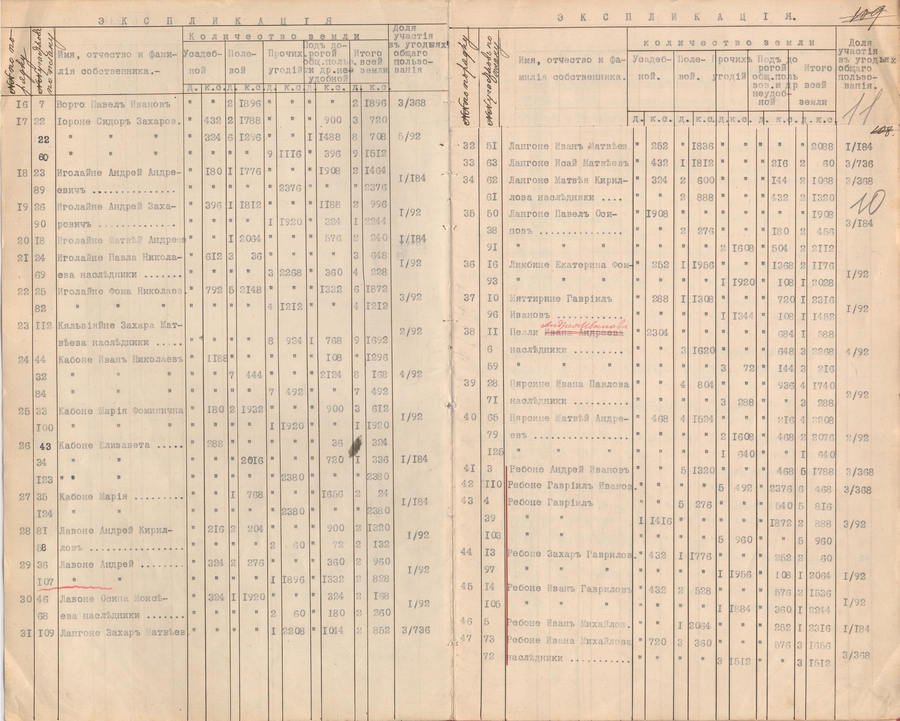 ЭКСПЛИКАЦІЯ
Количество земли
Имя, отчество и фамилія собственника.-
Усадебной
Полевой
Прочих угодій
Подъ дорогой общ.польз. и др.неудобной
Итого всей земли
Доля участія въ угодьяхъ общаго пользованія
Д. К.С. Д. К.С. Д. К.С. Д. К.С. Д. К.С.
I6 7 Ворго Павелъ Ивановъ " " 2 I896 " " " " 2 I896 3/368
I7 22 Іороне Сидоръ Захаров. " 432 2 I788 " " " 900 3 720
22 " " " 324 6 I296 " " I I488 8 708 5/92
60 " " " " " " 9 III6 " 396 9 I5I2
I8 23 Иголайне Андрей Андре- " I80 I I776 " " " I908 2 I464
89 евичъ .............. " " " " " 2376 " " " 2376 I/I84
I9 26 Иголайне Андрей Заха- " 396 I I8I2 " " " II88 2 996
90 ровичъ .............. " " " " I I920 " 324 I 2244 I/92
20 I8 Иголайне Матвѣй Андреев " " I 2064 " " " 576 2 240 I/I84
2I 24 Иголайне Павла Никола- " 6I2 3 36 " " " " 3 648
69 ева наслѣдники ....... " " " " 3 2268 " 360 4 228 I/92
22 25 Иголайне Фома Николаев. " 792 5 2I48 " " " I332 6 I872
82 " " " " " " 4 I2I2 " " 4 I2I2 3/92
23 II2 Кяльвіяйне Захара Мат-
вѣева наслѣдники ....... " " " " 8 924 I 768 9 I692 2/92
24 44 Кабоне Иванъ Николаевъ " II88 " " " " " I08 " I296
32 " " " " 7 444 " " " 2I24 8 I68 4/92
84 " " " " " " 7 492 " " 7 492
25 33 Кабоне Марія Фоминична " I80 2 I932 " " " 900 3 6I2
I00 " " " " " " I I920 " " I I920 I/92
26 43 Кабоне Елизавета ..... " 288 " " " " " 36 " 324
34 " " " " " 20I6 " " " 720 I 336 I/I84
I23 " " " " " " " 2380 " " " 2380
27 35 Кабоне Марія ........ " " I 768 " " " I656 2 24
I24 " " " " " " " 2380 " " " 2380 I/I84
28 8I Лавоне Андрей Кирил- " 2I6 2 204 " " " 900 2 I320
58 ловъ ................ " " " " 2 60 " 72 2 I32 I/92
29 36 Лавоне Андрей ....... " 324 2 276 " " " 360 2 960
I07 " " " " " " I I896 " I332 2 828 I/92
30 46 Лавоне Осипа Моисѣ- " 324 I I920 " " " 324 2 I68
68 ева наслѣдники ....... " " " " 2 60 " I80 2 260 I/92
3I I09 Лангоне Захаръ Матвѣев. " " " " I 2208 " I0I4 2 852 3/736
ЭКСПЛИКАЦІЯ.
109
количество земли
Имя, отчество и фамилія собственника.
Усадебной.
Полевой.
Прочихъ угодій
Подъ дорогой общ.польз.и др неудобной
Итого всей земли
Доля участія въ угодьяхъ общаго пользованія.
Д. К.С. Д. К.С. Д. К.С. Д. К.С. Д. К.С.
11
108.
32 5I Лангоне Иванъ Матвѣев. " 252 " I836 " " " " " 2088 I/I84
33 63 Лангоне Исай Матвѣевъ " 432 I I8I2 " " " 2I6 2 60 3/736
34 62 Лангоне Матвѣя Кирил- " 324 2 600 " " " I44 2 I068 3/368
6I лова наслѣдники .... " " 2 888 " " " 432 2 I320
10
35 50 Лангоне Павелъ Оси- " I908 " " " " " " " I908
38 повъ ............... " " 2 276 " " " I80 2 456 3/I84
9I " " " " " " 2 I608 " 504 2 2II2
36 I6 Лимбине Екатерина Фом- " 252 I I956 " " " I368 2 II76
93 " " " " " " I I920 " I08 I 2028 I/92
37 I0 Мяттирине Гавріилъ " 288 I I308 " " " 720 I 23I6
96 Ивановъ ............ " " " " I I344 " I08 I I452 I/92
Андрея Иванова
38 II Пелли Ивана Андреева " 2304 " " " " " 684 I 588
6 наслѣдники ......... " " 3 I620 " " " 648 3 2268 4/92
59 " " " " " " 3 72 " I44 3 2I6
39 28 Пярсине Ивана Павлова " " 4 804 " " " 936 4 I740
7I наслѣдники ......... " " " " 3 288 " " 3 288 2/92
40 65 Пярсине Матвѣй Андре- " 468 4 I524 " " " 2I6 4 2208
79 евъ ................ " " " " 2 I608 " 468 2 2076 2/92
I25 " " " " I 640 " " I 640
4I 3 Ребоне Андрей Ивановъ " " 5 I320 " " " 468 5 I788 3/368
42 II0 Ребоне Гавріилъ Иванов. " " " " 5 492 " 2376 6 468 3/368
43 4 Ребоне Гавріилъ " " 5 276 " " " 540 5 8I6
39 " " I I4I6 " " " " " I872 2 888 3/92
I08 " " " " " " 5 960 " " 5 960
44 I3 Ребоне Захаръ Гаврилов. " 432 I I776 " " " 252 2 60
97 " " " " " " I I956 " I08 I 2064 I/92
45 I4 Ребоне Иванъ Гавриловъ " 432 2 528 " " " 576 2 I536
I05 " " " " " " I I884 " 360 I 2244 I/92
46 5 Ребоне Иванъ Михайлов. " " I 2064 " " " 252 I 23I6 I/I84
47 73 Ребоне Ивана Михайлова " 720 3 360 " " " 576 3 I656
72 наслѣдники ......... " " " " 3 I5I2 " " 3 I5I2 3/368